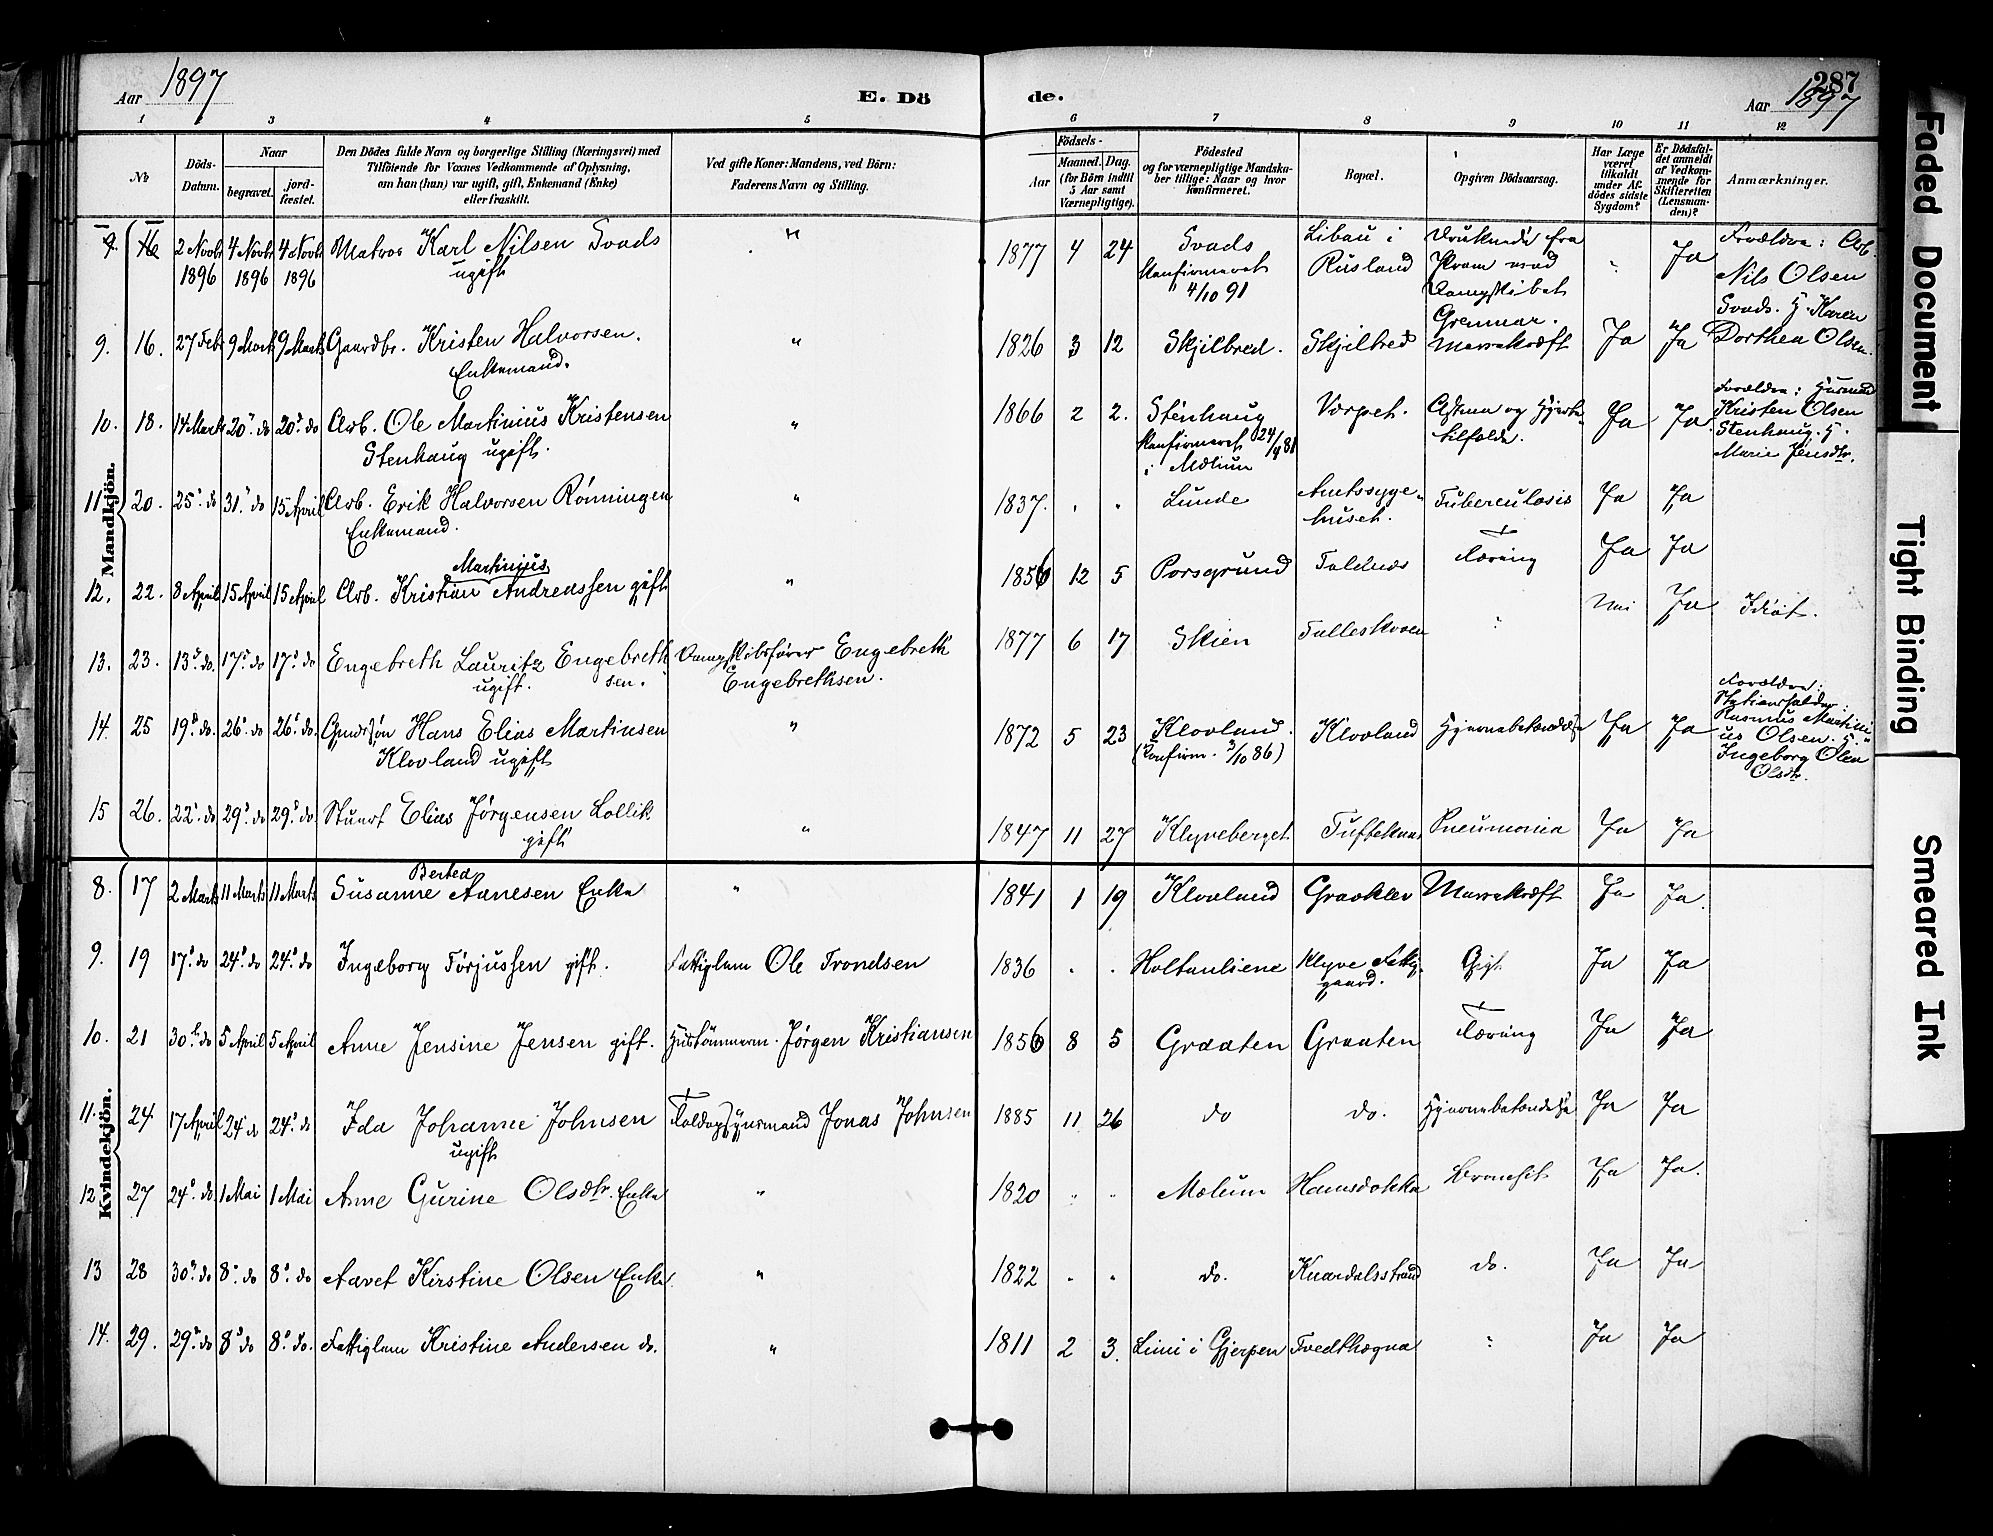 Aar 1897
E. Dö
de.
287
Aar 1897
1 2 3 4 5 6 7 8 9 10 11 12
No
Döds-Datum.
Naar
begravet.
jord-fæstet.
Den Dödes fulde Navn og borgerlige Stilling (Næringsvei) med
Tilföiende för Voxnes Vedkommende af Oplysning,
om han (hun) var ugift, gift, Enkemand (Enke)
eller fraskilt.
Ved gifte Koner: Mandens, ved Börn:
Faderens Navn og Stilling.
Födsels-
Aar
Maaned. Dag.
(for Börn indtil
5 Aar samt
Værnepligtige).
Födested
og for værnepligtige Mandska-
ber tillige: Naar og hvor
konfirmeret.
Bopæl.
Opgiven Dödsaarsag.
Har Læge
været
tilkaldt
under Af-
dödes sidste
Sygdom?
Er Dödsfal-
det anmeldt
af Vedkom-
mende for
Skifteretten
(Lensman-
den)?
Anmærkninger.
Mandkjön.
2 Novbr 1896 4 Novbr 1896 4 Novbr 1896 Matros Karl Nilsen Svads
ugift
" 1877 4 24 Svads
Konfirmeret
4/10 91
Libau i
Rusland
Druknede fra
Pram ved
Dampskibet
Grenmar.
" Ja Forældre: Arb.
Nils Olsen
Svads. H. Karen
Dorthea Olsen.
9. 16. 27 Feb 9 Marts 9 Marts Gaardbr. Kristen Halvorsen.
Enkemand.
" 1826 3 12 Skjilbred. Skjilbred Marvekræft Ja Ja
10. 18. 14 Marts 20. do 20. do Arb. Ole Martinius Kristensen
Stenhaug ugift.
" 1866 2 2. Stenhaug
Konfirmeret 24/4 81
i Mælum
Værpet. Astma og Hjerte-
tilfælde.
Ja Ja. Forældre: Husmand
Kristen Olsen
Stenhaug. H.
Marie Jensdtr.
11 20. 25. do 31. do 15 April Arb. Erik Halvorsen Rönningen
Enkemand.
" 1837. " " Lunde Amtssyge-
huset.
Tuberculosis Ja Ja
12. 22. 8 April 15 April 15 April Arb. Kristian Martinius Andreassen gift " 1856 12 5 Porsgrund Faldnes Tæring Ja Ja
13. 23. 13. do. 17. do 17. do Engebreth Lauritz Engebreth
sen.
ugift.
Dampskibsfører Engebreth
Engebrethsen.
1877 6 17 Skien Fulleskoven " Nei Ja Idiot.
14. 25 19. do. 26. do 26. do. Gaardsøn Hans Elias Martinsen
Klovland ugift
" 1872 5 23 Klovland.
(Konfirm. 3/10 86)
Klovland Hjernebetændelse Ja Ja Forældre:
Rasmus Martini
us Olsen. H.
Ingeborg Olea
Olsdtr.
15 26. 22. do 29. do 29. do. Stuert Elias Jørgensen Lollik
gift
" 1847 11 27 Klyveberget Tufteknas Pneumonia Ja Ja
Kvindekjön.
8. 17 2 Marts 11 Marts 11 Marts Susanne Bertea Aanesen Enke " 1841 1 19 Klovland Graaklev Marvekræft Ja Ja.
9. 19 17. do 24. do 24. do Ingeborg Torjussen gift. Fattiglem Ole Trondsen 1836 " " Holtanliene Klyve Fattig-
gaard.
Gigt Ja Ja
10. 21 30. do 5 April 5 April Anne Jensine Jensen gift. Hustömmerm. Jørgen Kristiansen 1856 8 5 Graaten Graaten Tæring Ja Ja
11. 24 17 April 24. do 24. do Ida Johanne Johnsen
ugift
Husmand Jonas Johnsen 1885 11 26 do do. Hjernebetændelse Ja Ja
12 27 24. do. 1 Mai 1 Mai Anne Gurine Olsdtr. Enke " 1820 " " Mælum Hansdokka Bronchit Ja Ja.
13 28 30. do 8. do 8. do Aavet Kirstine Olsen Enke. " 1822 " " do. Knardalsstrand do. Ja Ja
14. 29. 29. do 8. do 8. do. Fattiglem Kristine Andersen do. " 1811 2 3. Limi i Gjerpen Tvedthægna " Ja Ja
Faded Document
Tight Binding
Smeared Ink